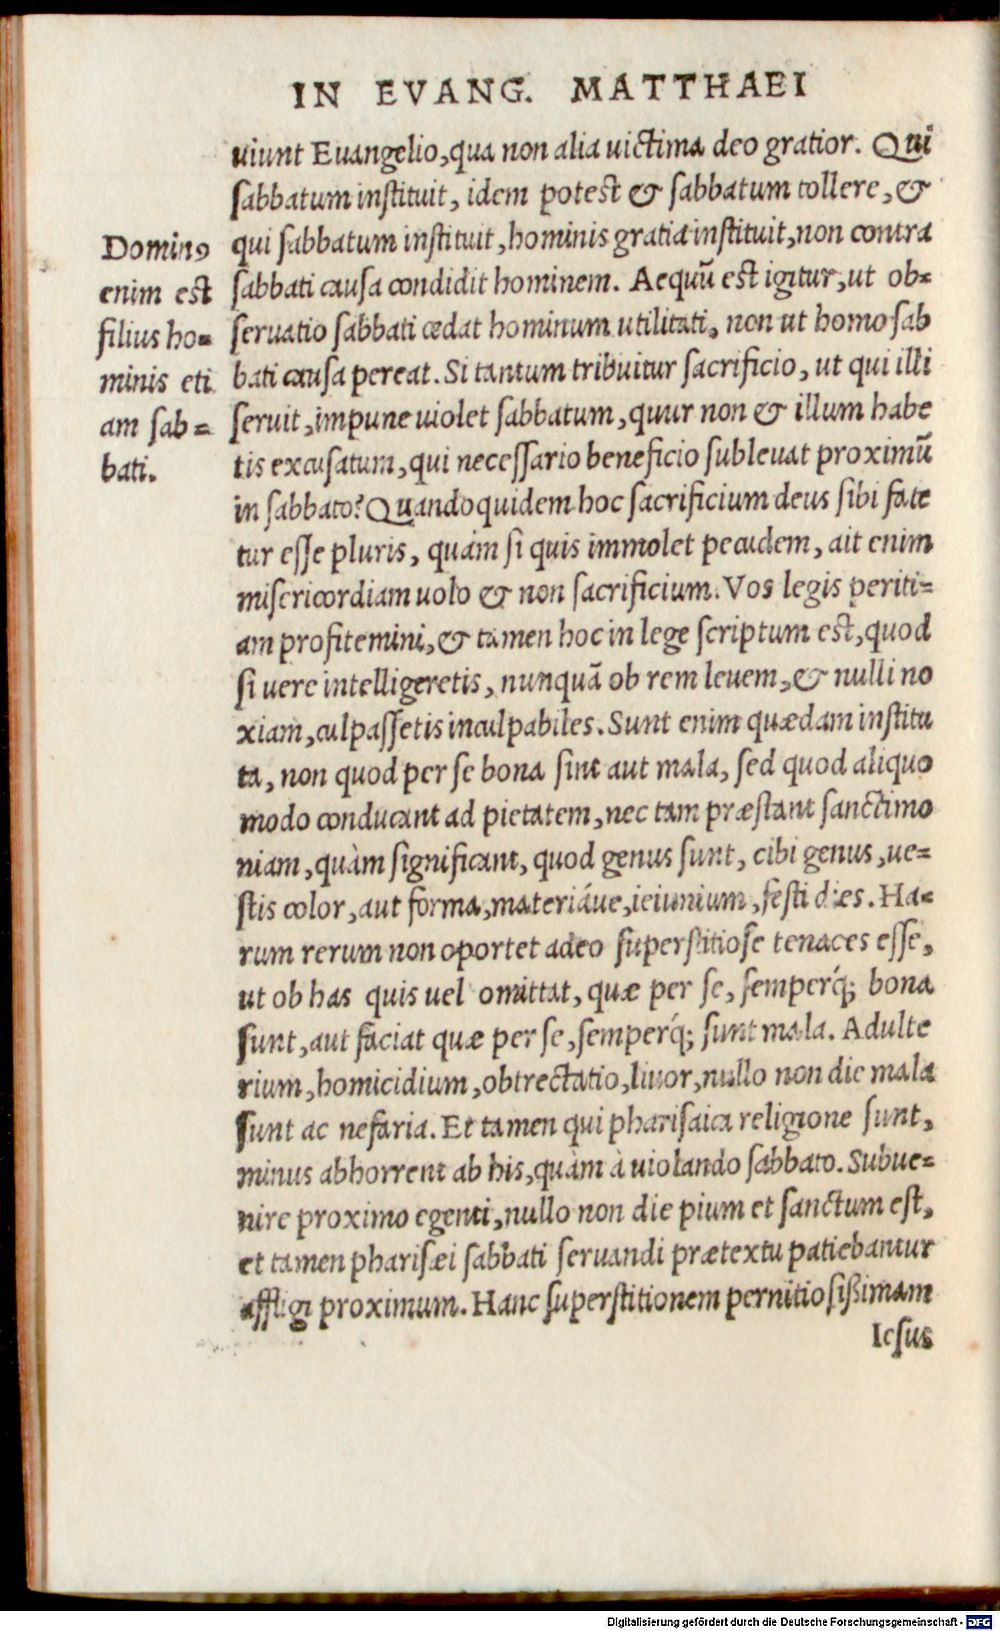 IN EVANG. MATTHAEI
uiunt Euangelio, qua non alia uictima deo gratior. Qui
sabbatum instituit, idem potest & sabbatum tollere, &
qui sabbatum instituit, hominis gratia instituit, non contra
sabbati causa condidit hominem. Aequũ est igitur, ut ob=
seruatio sabbati cedat hominum utilitati, non ut homo sab
bati causa pereat. Si tantum tribuitur sacrificio, ut qui illi
seruit, impune uiolet sabbatum, quur non & illum habe
tis excusatum, qui necessario beneficio subleuat proximũ
in sabbato? Quandoquidem hoc sacrificium deus sibi fate
tur esse pluris, quàm si quis immolet pecudem, ait enim
misericordiam uolo & non sacrificium. Vos legis periti=
am profitemini, & tamen hoc in lege scriptum est, quod
si uere intelligeretis, nunquã ob rem leuem, & nulli no
xiam, culpassetis inculpabiles. Sunt enim quædam institu
ta, non quod per se bona sint aut mala, sed quod aliquo
modo conducant ad pietatem, nec tam præstant sanctimo
niam, quàm significant, quod genus sunt, cibi genus, ue=
stis color, aut forma, materiáue, ieiunium, festi dies. Ha=
rum rerum non oportet adeo superstitiose tenaces esse,
ut ob has quis uel omittat, quæ per se, semperq́; bona
sunt, aut faciat quæ per se, semperq́; sunt mala. Adulte
rium, homicidium, obtrectatio, liuor, nullo non die mala
sunt ac nefaria. Et tamen qui pharisaica religione sunt,
minus abhorrent ab his, quàm à uiolando sabbato. Subue=
nire proximo egenti, nullo non die pium et sanctum est,
et tamen pharisæi sabbati seruandi prætextu patiebantur
affligi proximum. Hanc superstitionem pernitiosißimam
Iesus
Dominꝰ
enim est
filius ho=
minis eti
am sab=
bati.
Digitalisierung gefördert durch die Deutsche Forschungsgemeinschaft - DFG